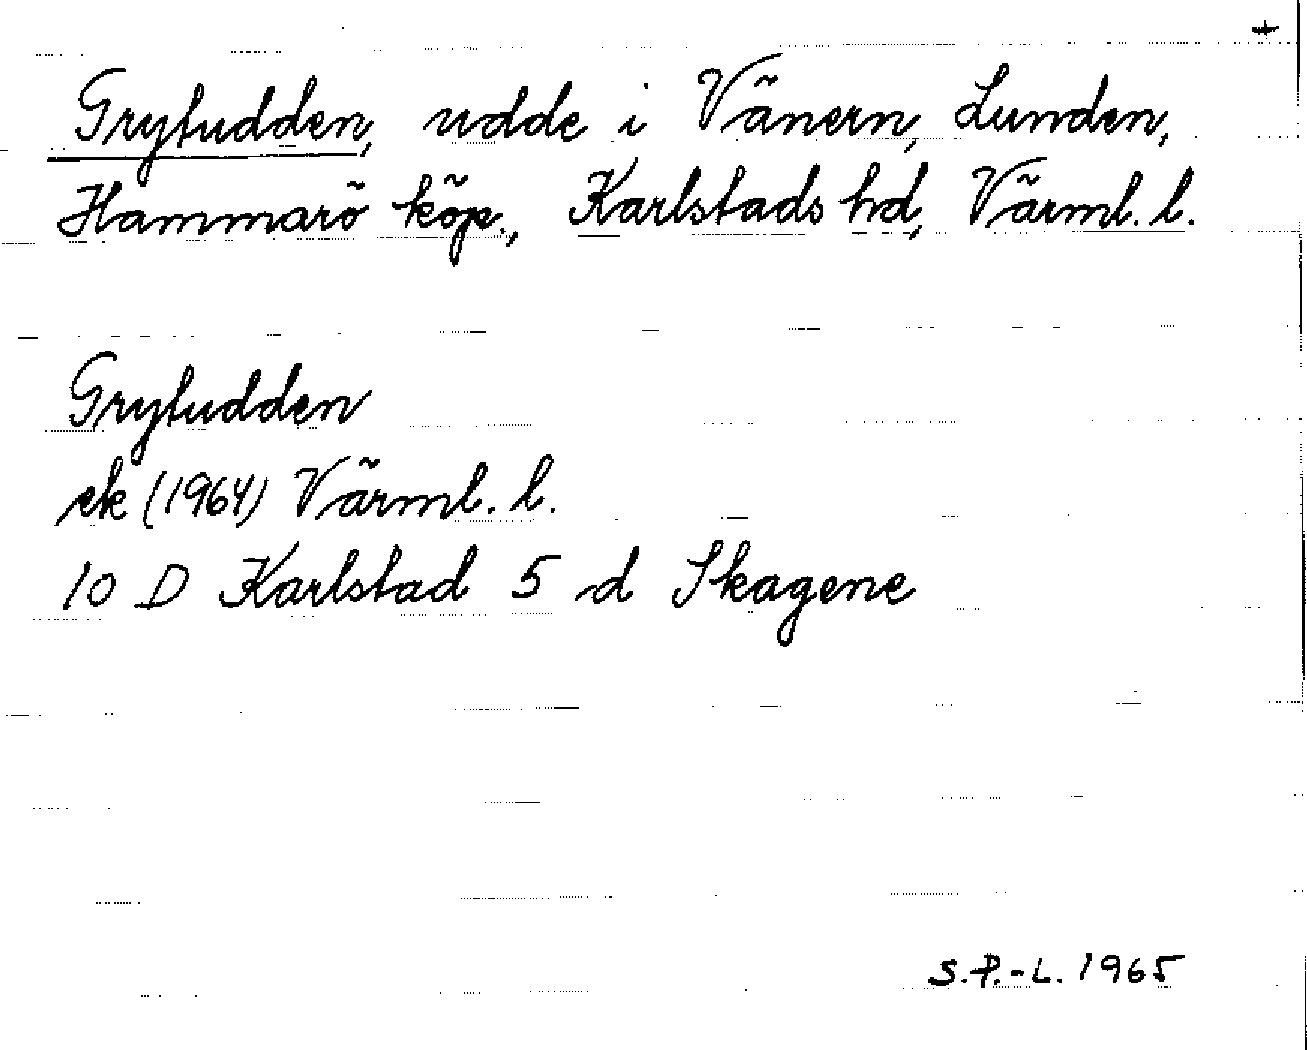 Grytudden, udde i Vänern, Lunden,
Hammarö köp., Karlstads hd, Värml. l.
Grytudden
ek (1964) Värml. l.
10 D Karlstad 5 d Skagene
S.P.-L. 1965